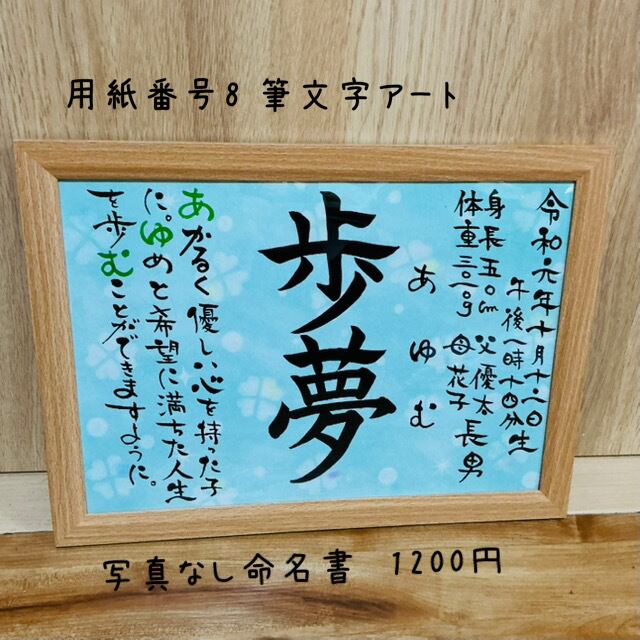 用紙番号8 筆文字アート
令和元年十月十二日
午後一時十四分生
身長五〇cm 父優太 長男
体重三〇一〇g 母花子
あゆむ
歩夢
あかるく優しい心を持った子
に。ゆめと希望に満ちた人生
を歩むことができますように。
写真なし命名書 1200円